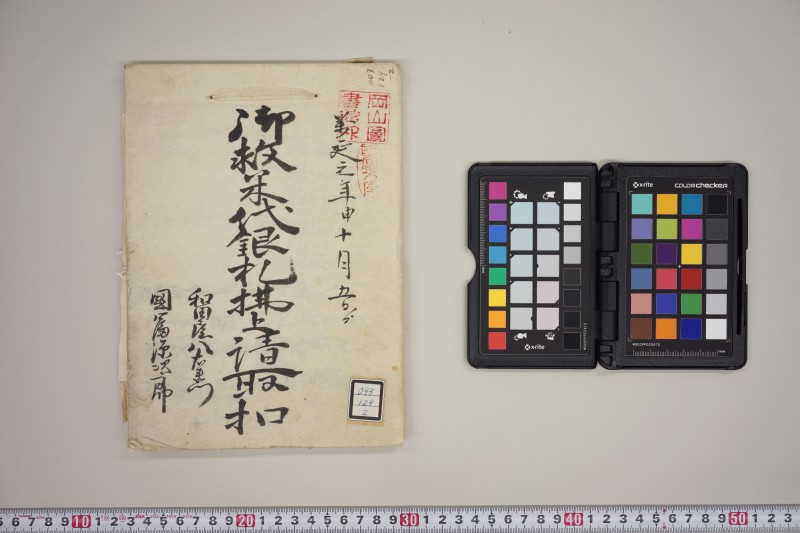 萬延元年申十月
御救米代銀札拂上請取扣
和田屋八右衛門
國富源次郎
岡山
093
129
2
x-rite
x-rite
COLOR CHECKER
MSCCPPCC0613
MSCCPPCC0613
6 7 8 9 10 1 2 3 4 5 6 7 8 9 20 1 2 3 4 5 6 7 8 9 30 1 2 3 4 5 6 7 8 9 40 1 2 3 4 5 6 7 8 9 50 1 2 3